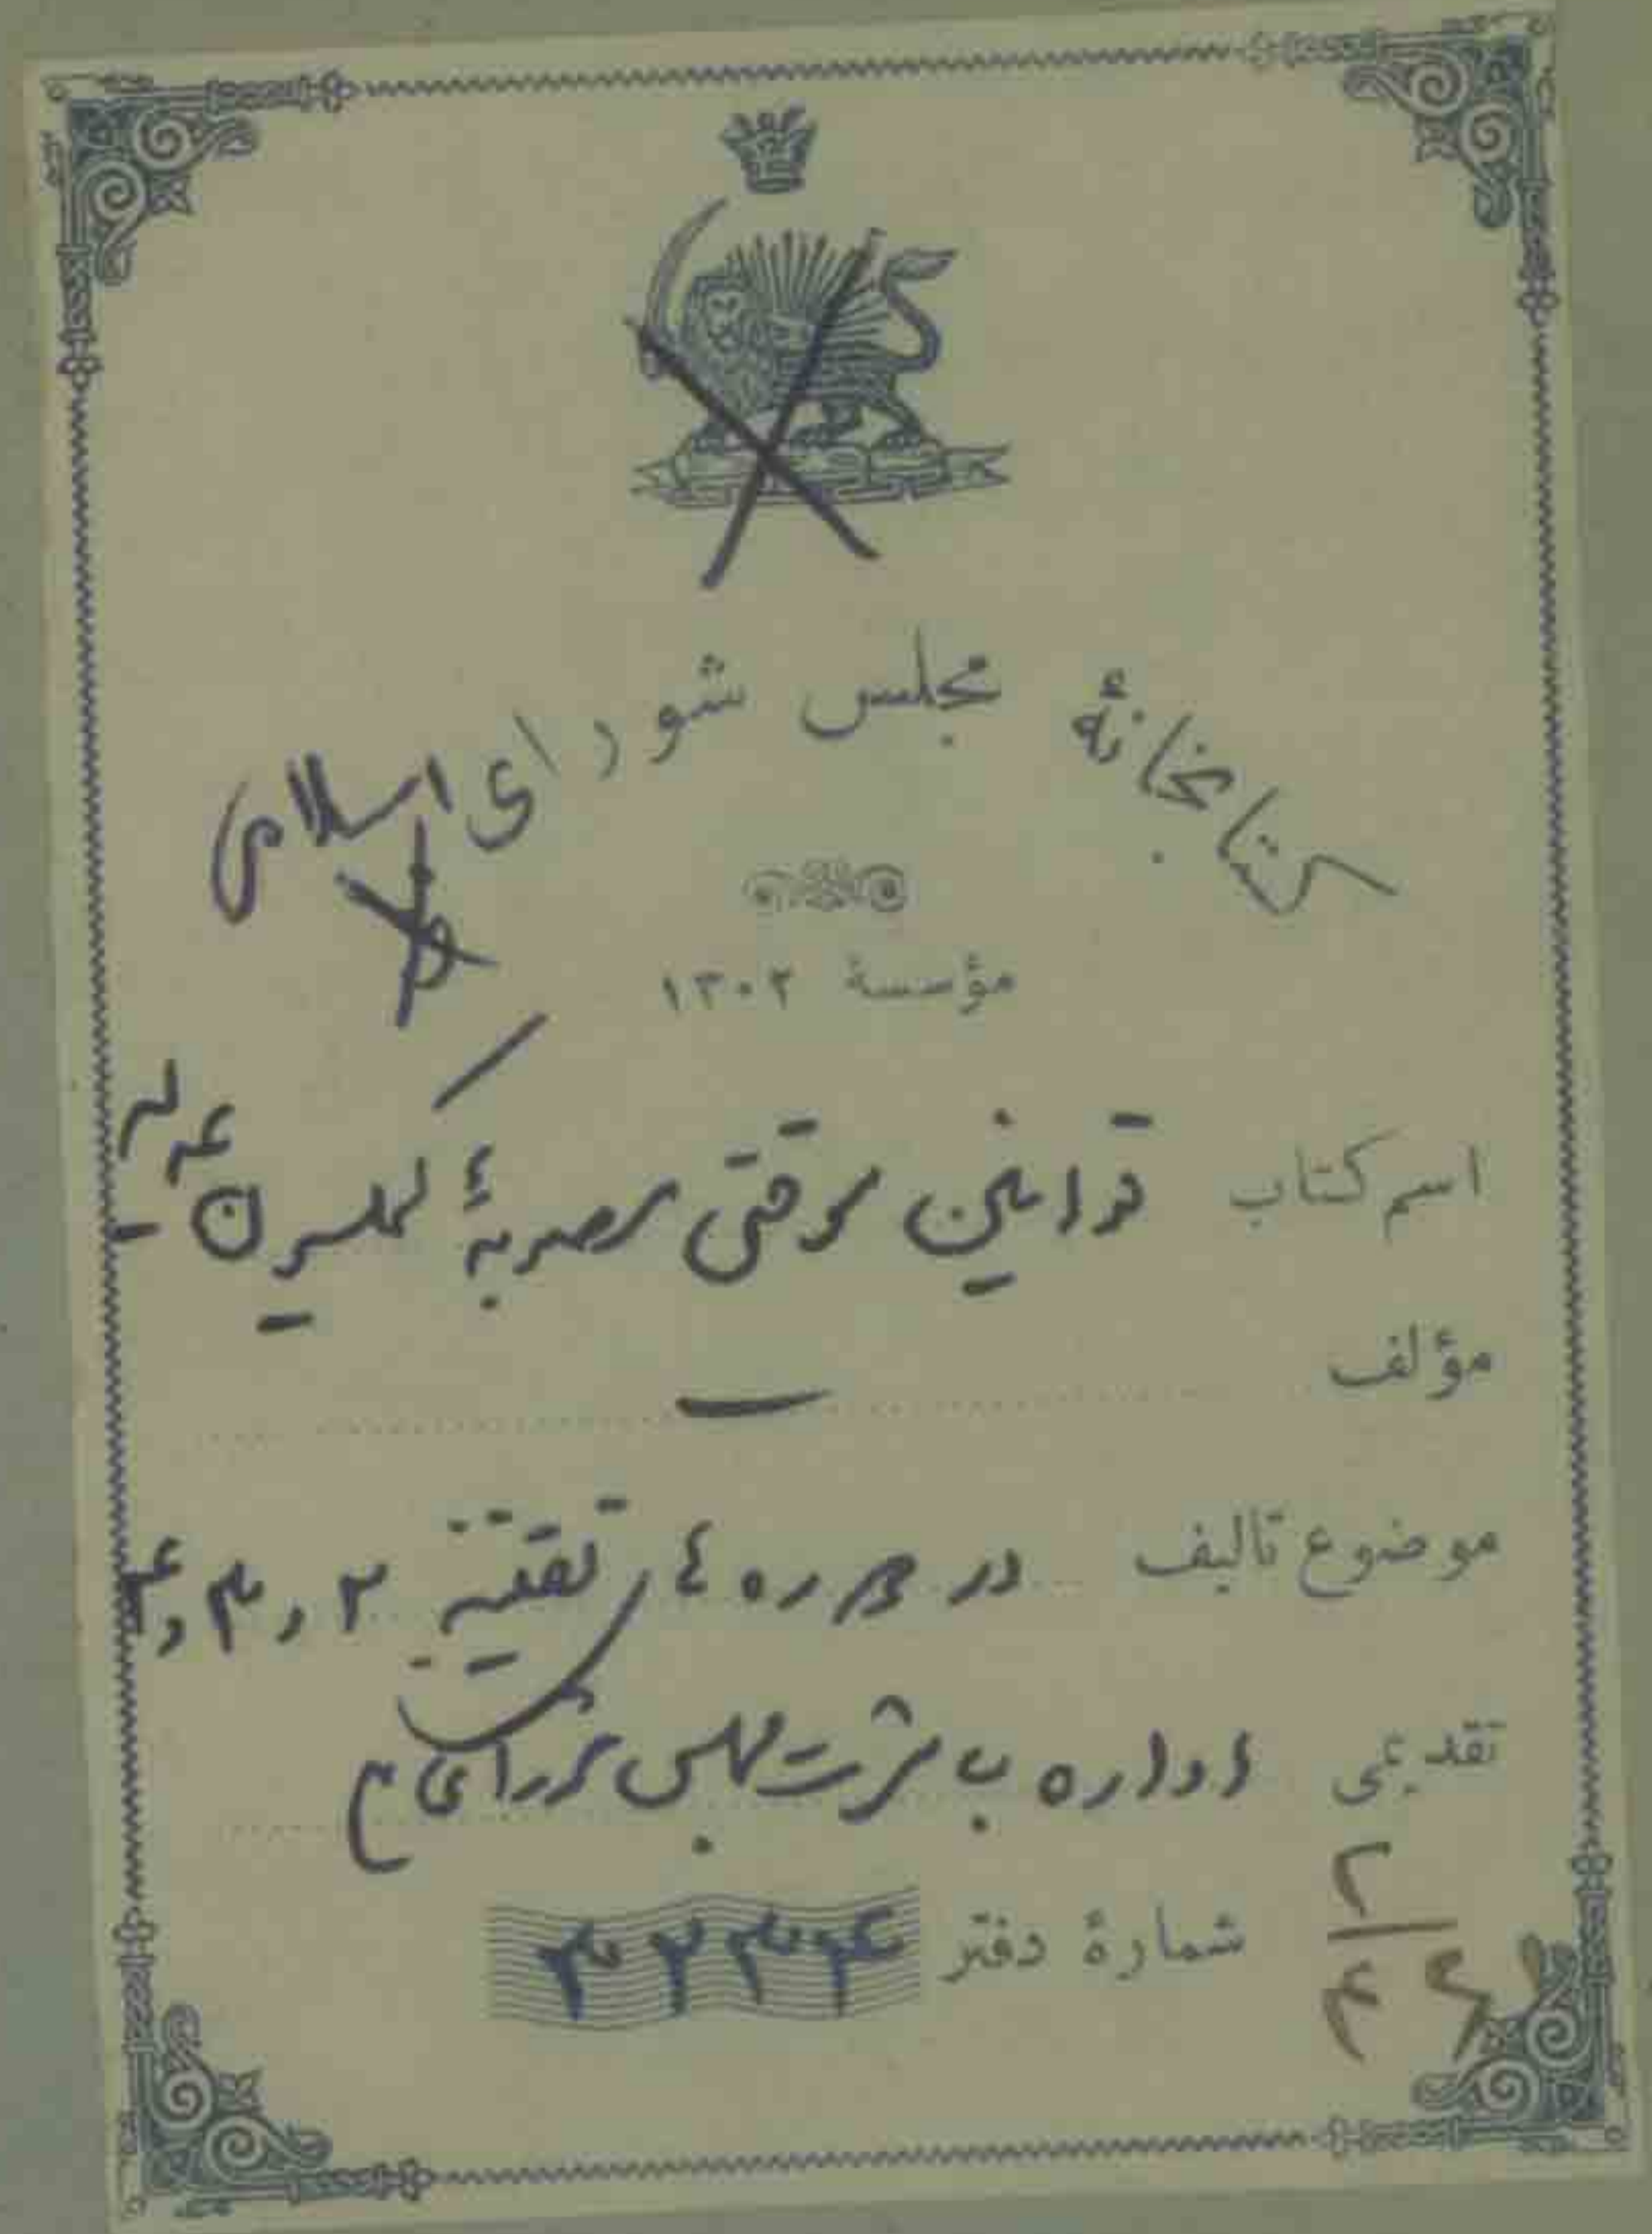 کتابخانهٔ مجلس شورای اسلامی
مؤسسهٔ ۱۳۰۲
اسم کتاب قوانین موقتی مصوبهٔ کمسیون عدلیه
مؤلف ـ
موضوع تألیف در دوره های تقنینیه ۲ و ۳ و ۴
تقدیمی اداره مباشرت مجلس شورای م
شمارهٔ دفتر ۳۲۳۴